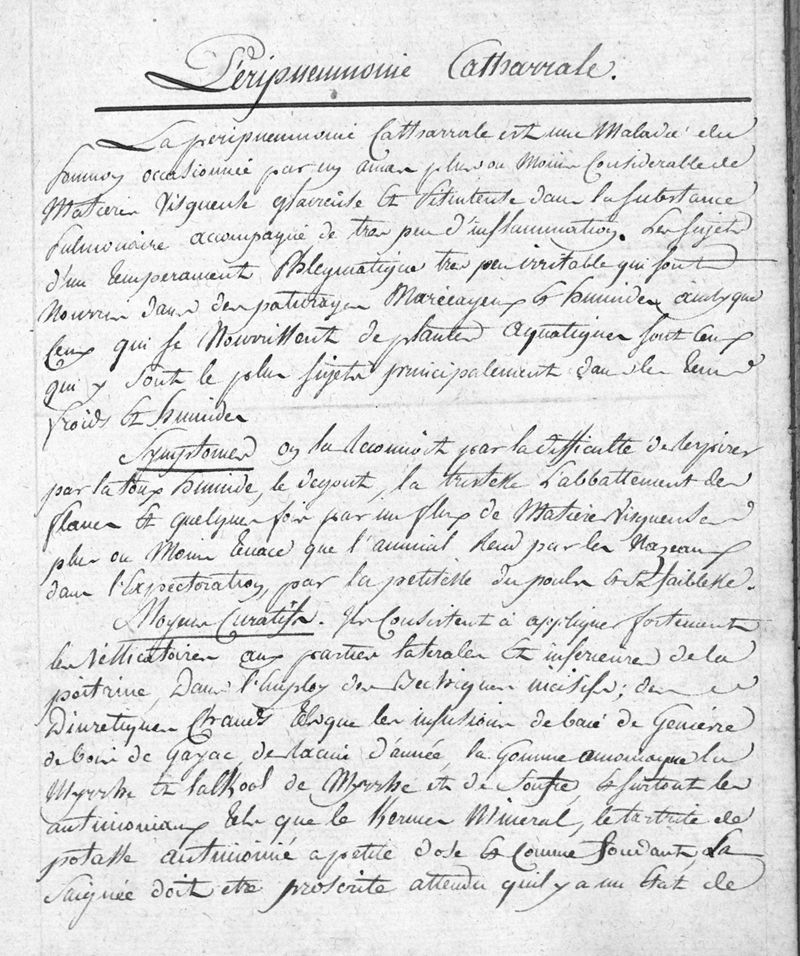 Péripneumonie Catharrale.
La péripneumonie Catharrale est une Maladie du
Poumon occasionnée par un amas plus ou Moins Considérable de
Matières Visqueuse glaireuse et Pituiteuse dans la substance
Pulmonaire acompagné de tres peu d'inflammation. Les sujets
d'un temperament Phlegmatique tres peu irritable qui sont
Nourris dans des paturages Marécageux et humides, ainsy que
Ceux qui se Nourrissent de plantes aquatiques sont Ceux
qui y sont le plus sujets principalement dans les tems
froids et humides
Symptomes on la reconnoit par la difficulté de respirer
par la toux humide, le degout, la tristesse l'abbattement des
flancs et quelques fois par un flux de Matière Visqueuse
plus ou Moins tenace que l'animal rend par les Nazeaux
dans l'Expectoration, par la petitesse du pouls et sa faiblesse.
Moyens Curatifs. Ils Consistent à appliquer fortement
les Vessicatoires aux parties laterales et inferieures de la
poitrine, Dans l'Employ des Bechiques incisifs; des
Diuretiques Chauds tels que les infusions de baie de Genièvre
de bois de Gayac, de racine d'année, la Gomme amoniaque la
Myrrhe et l'alkool de Myrrhe et de Soufre, et surtout les
antimoniaux tels que le Kermes Mineral, le tartrite de
potasse antimonié a petite dose et Comme fondant, La
Saignée doit etre proscrite attendu qu'il y a un Etat de